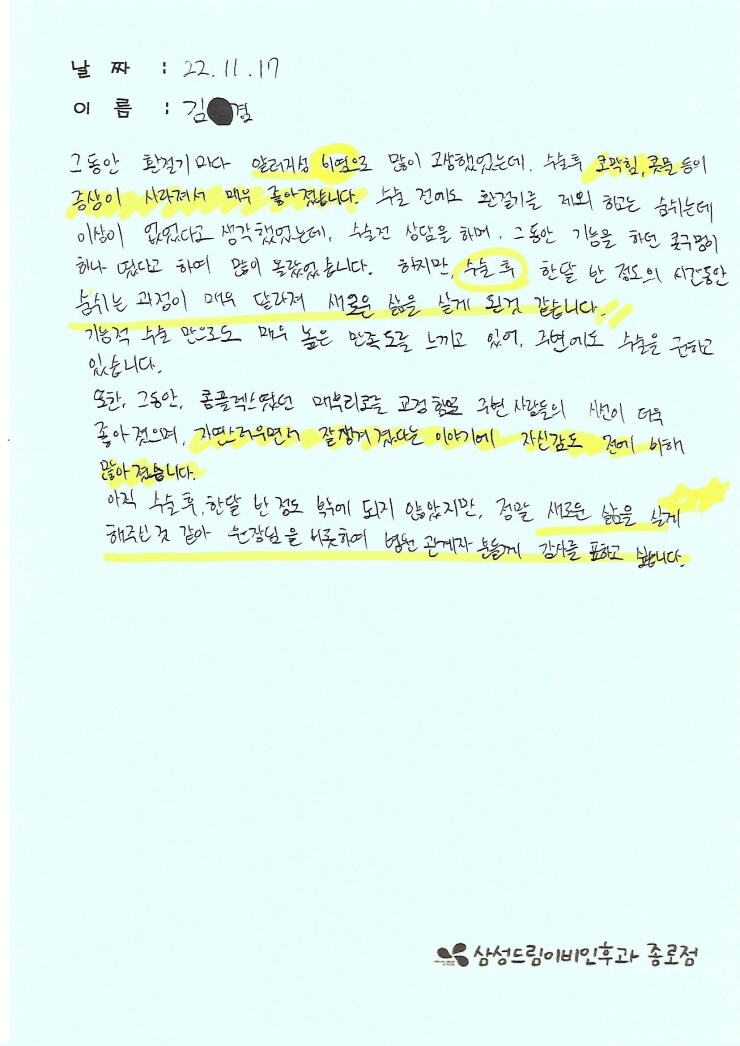 날 짜 : 22.11.17
이 름 : 김 겸
그동안 환절기마다 알러지성 비염으로 많이 고생했었는데, 수술후 코막힘, 콧물 등의
증상이 사라져서 매우 좋아졌습니다. 수술 전에도 환절기를 제외 하고는 숨쉬는데
이상이 없었다고 생각했었는데, 수술전 상담을 하며, 그동안 기능을 하던 콧구멍이
하나 였다고 하여 많이 놀랐었습니다. 하지만, 수술 후 한달 반 정도의 시간동안
숨쉬는 과정이 매우 달라져 새로운 삶을 살게 된것 같습니다.
기능적 수술 만으로도 매우 높은 만족도를 느끼고 있어, 주변에도 수술을 권하고
있습니다.
또한, 그동안, 콤플렉스였던 매부리코를 교정함으로 주변 사람들의 시선이 더욱
좋아졌으며, 자연스러우면서 잘생겨졌다는 이야기에 자신감도 전에 비해
많아졌습니다.
아직 수술 후, 한달 반 정도 밖에 되지 않았지만, 정말 새로운 삶을 살게
해주신 것 같아 원장님을 비롯하여 병원 관계자 분들께 감사를 표하고 싶습니다.
삼성드림이비인후과 종로점